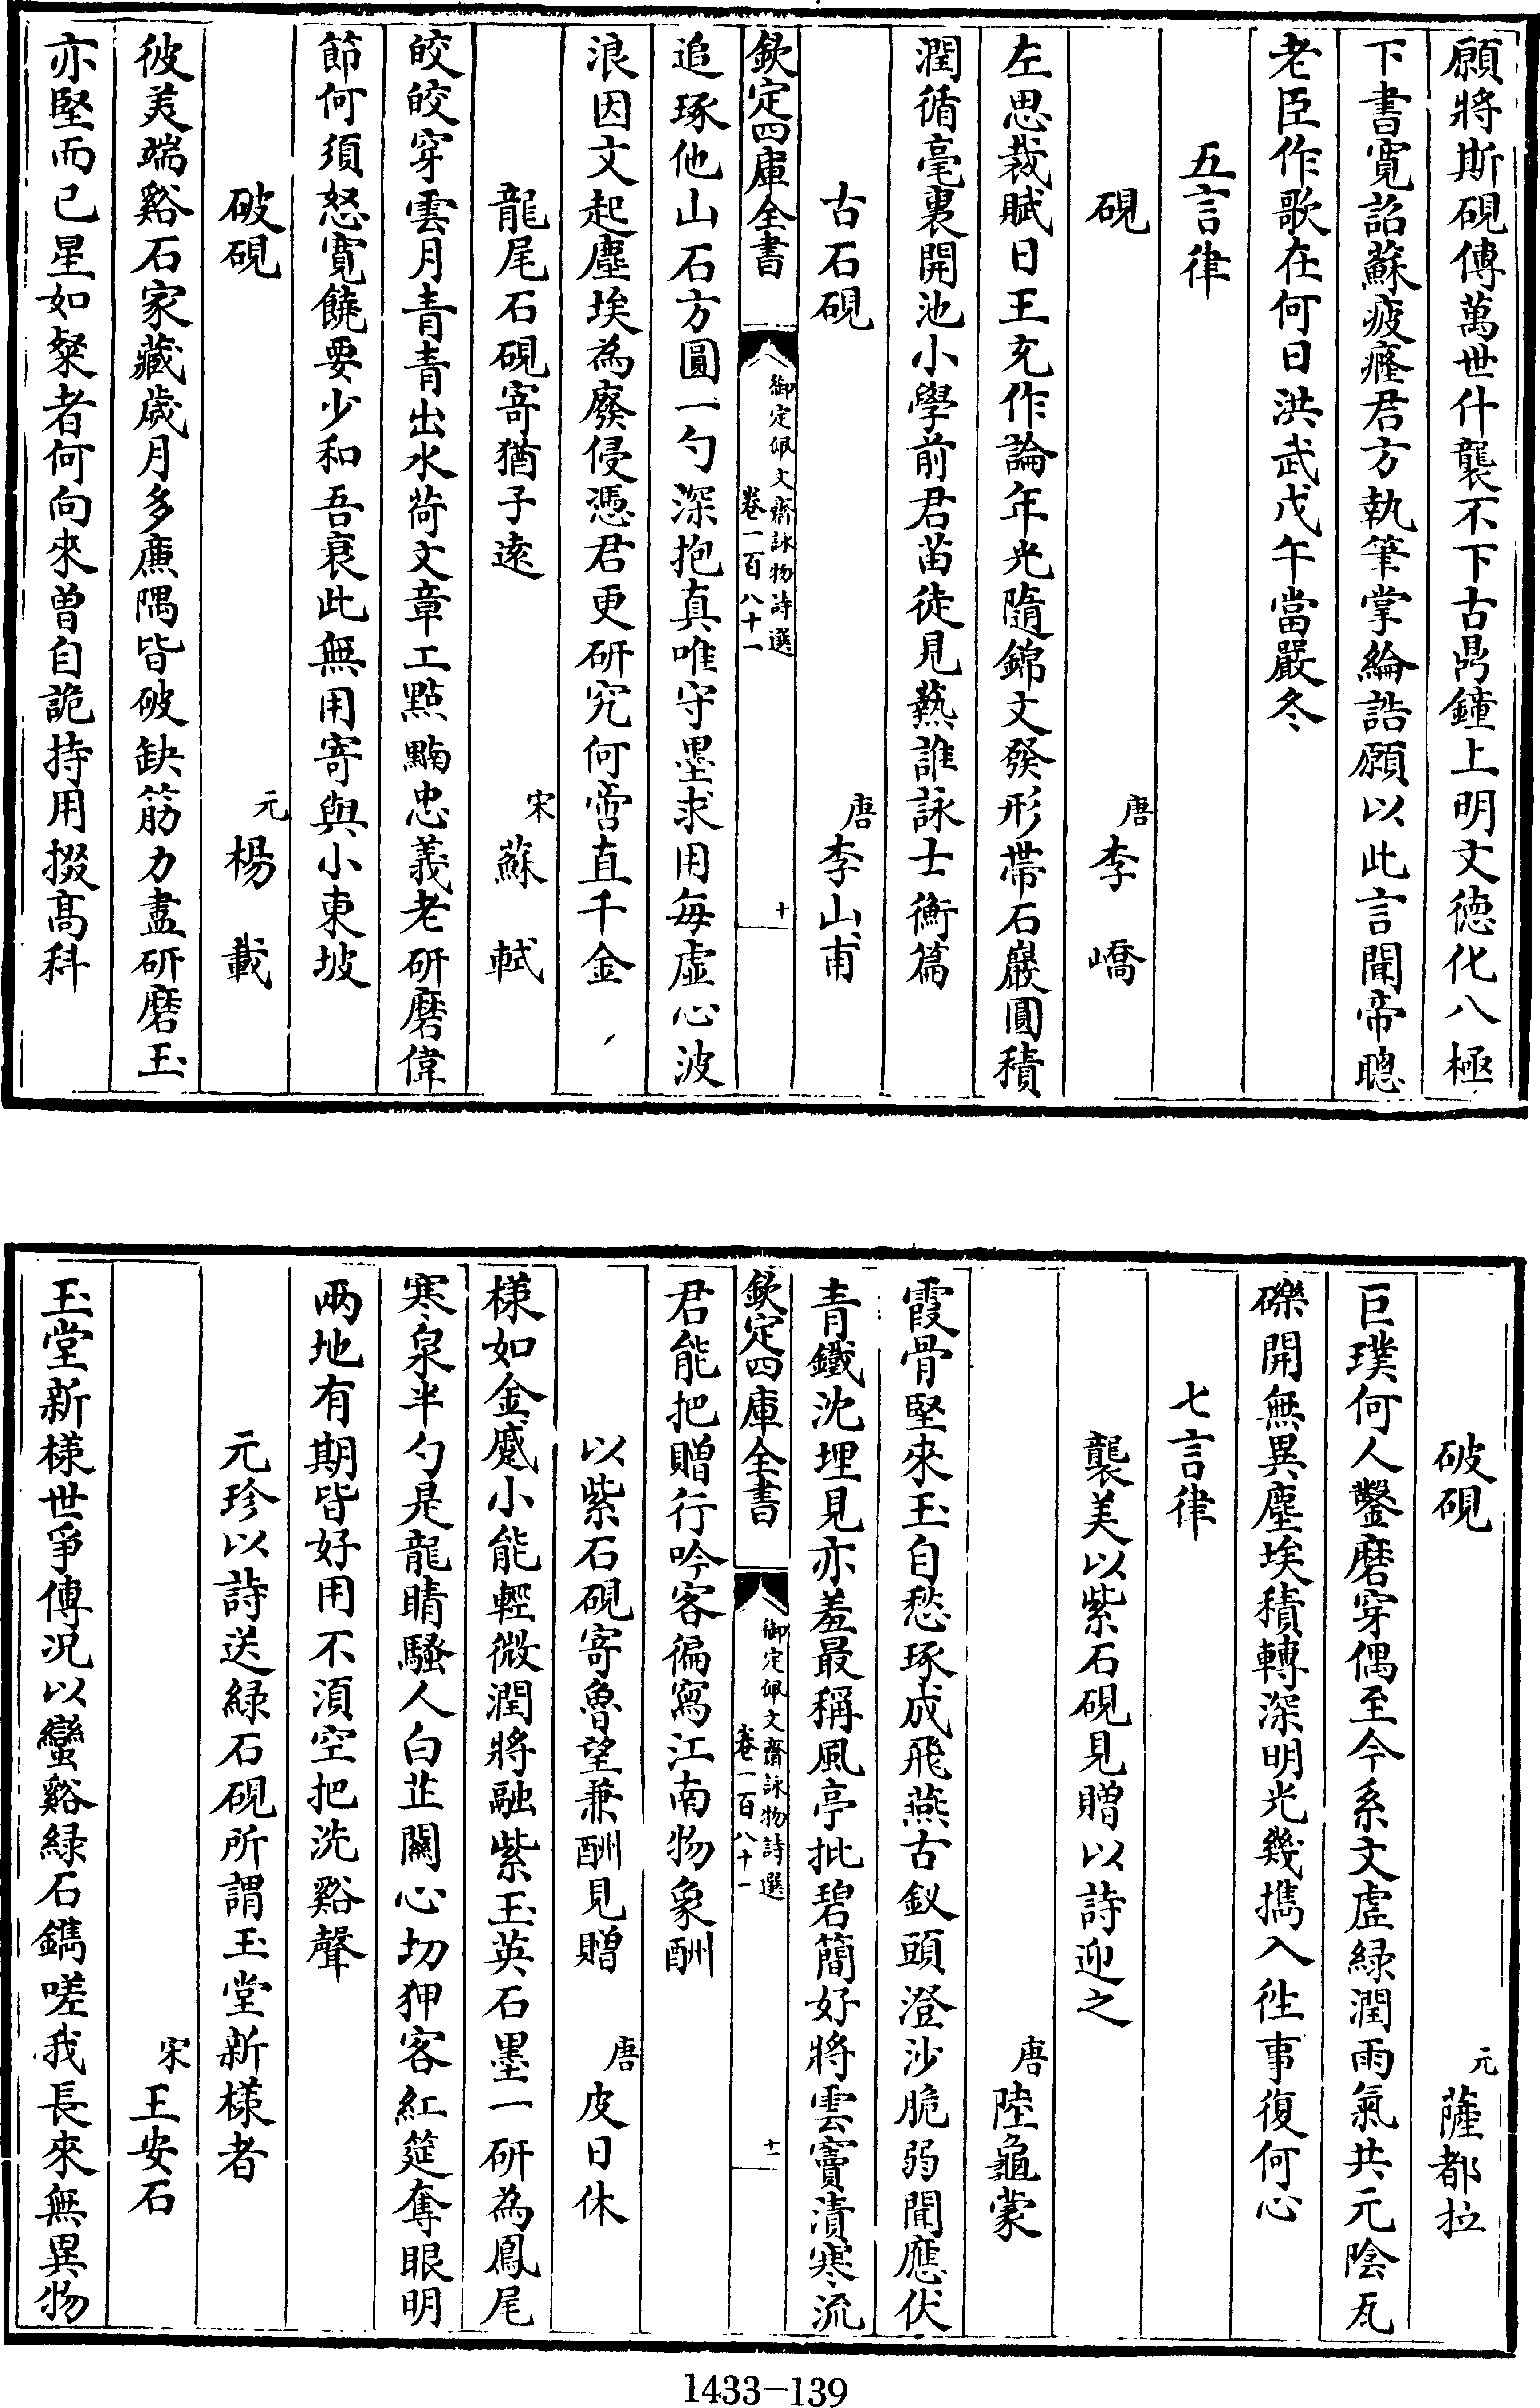 願將斯硯傳萬世什襲不下古鼎鐘上明文徳化八極
下書寛詔蘇疲癃君方執筆掌綸誥願以此言聞帝聰
老臣作歌在何日洪武戊午當嚴冬
五言律
硯　唐　李嶠
左思裁賦日王充作論年光隨錦文發形帶石巖圓積
潤循毫裏開池小學前君苗徒見爇誰詠士衡篇
古石硯　唐　李山甫
欽定四庫全書　御定佩文齋詠物詩選　卷一百八十一　十
追琢他山石方圓一勺深抱真唯守墨求用每虛心波
浪因文起塵埃為廢侵憑君更研究何啻直千金
龍尾石硯寄猶子逺　宋　蘇軾
皎皎穿雲月青青出水荷文章工點黝忠義老研磨偉
節何須怒寛饒要少和吾衰此無用寄與小東坡
破硯　元　楊載
彼美端谿石家藏歲月多廉隅皆破缺筋力盡研磨玉
亦堅而已星如粲者何向來曾自詭持用掇髙科
破硯　元　薩都拉
巨璞何人鑿磨穿偶至今系文虛緑潤雨氣共元陰瓦
礫開無異塵埃積轉深明光幾擕入徃事復何心
七言律
襲美以紫石硯見贈以詩迎之
唐　陸龜蒙
霞骨堅來玉自愁琢成飛燕古釵頭澄沙脆弱聞應伏
青鐵沈埋見亦羞最稱風亭批碧簡好將雲竇漬寒流
欽定四庫全書　御定佩文齋詠物詩選　卷一百八十一　十一
君能把贈行吟客徧寫江南物象酬
以紫石硯寄魯望兼酬見贈　唐　皮日休
様如金蹙小能輕微潤將融紫玉英石墨一研為鳳尾
寒泉半勺是龍睛騷人白芷闗心切狎客紅筵奪眼明
兩地有期皆好用不須空把洗谿聲
元珍以詩送緑石硯所謂玉堂新様者
宋　王安石
玉堂新様世爭傳况以蠻谿緑石鐫嗟我長來無異物
1433—139